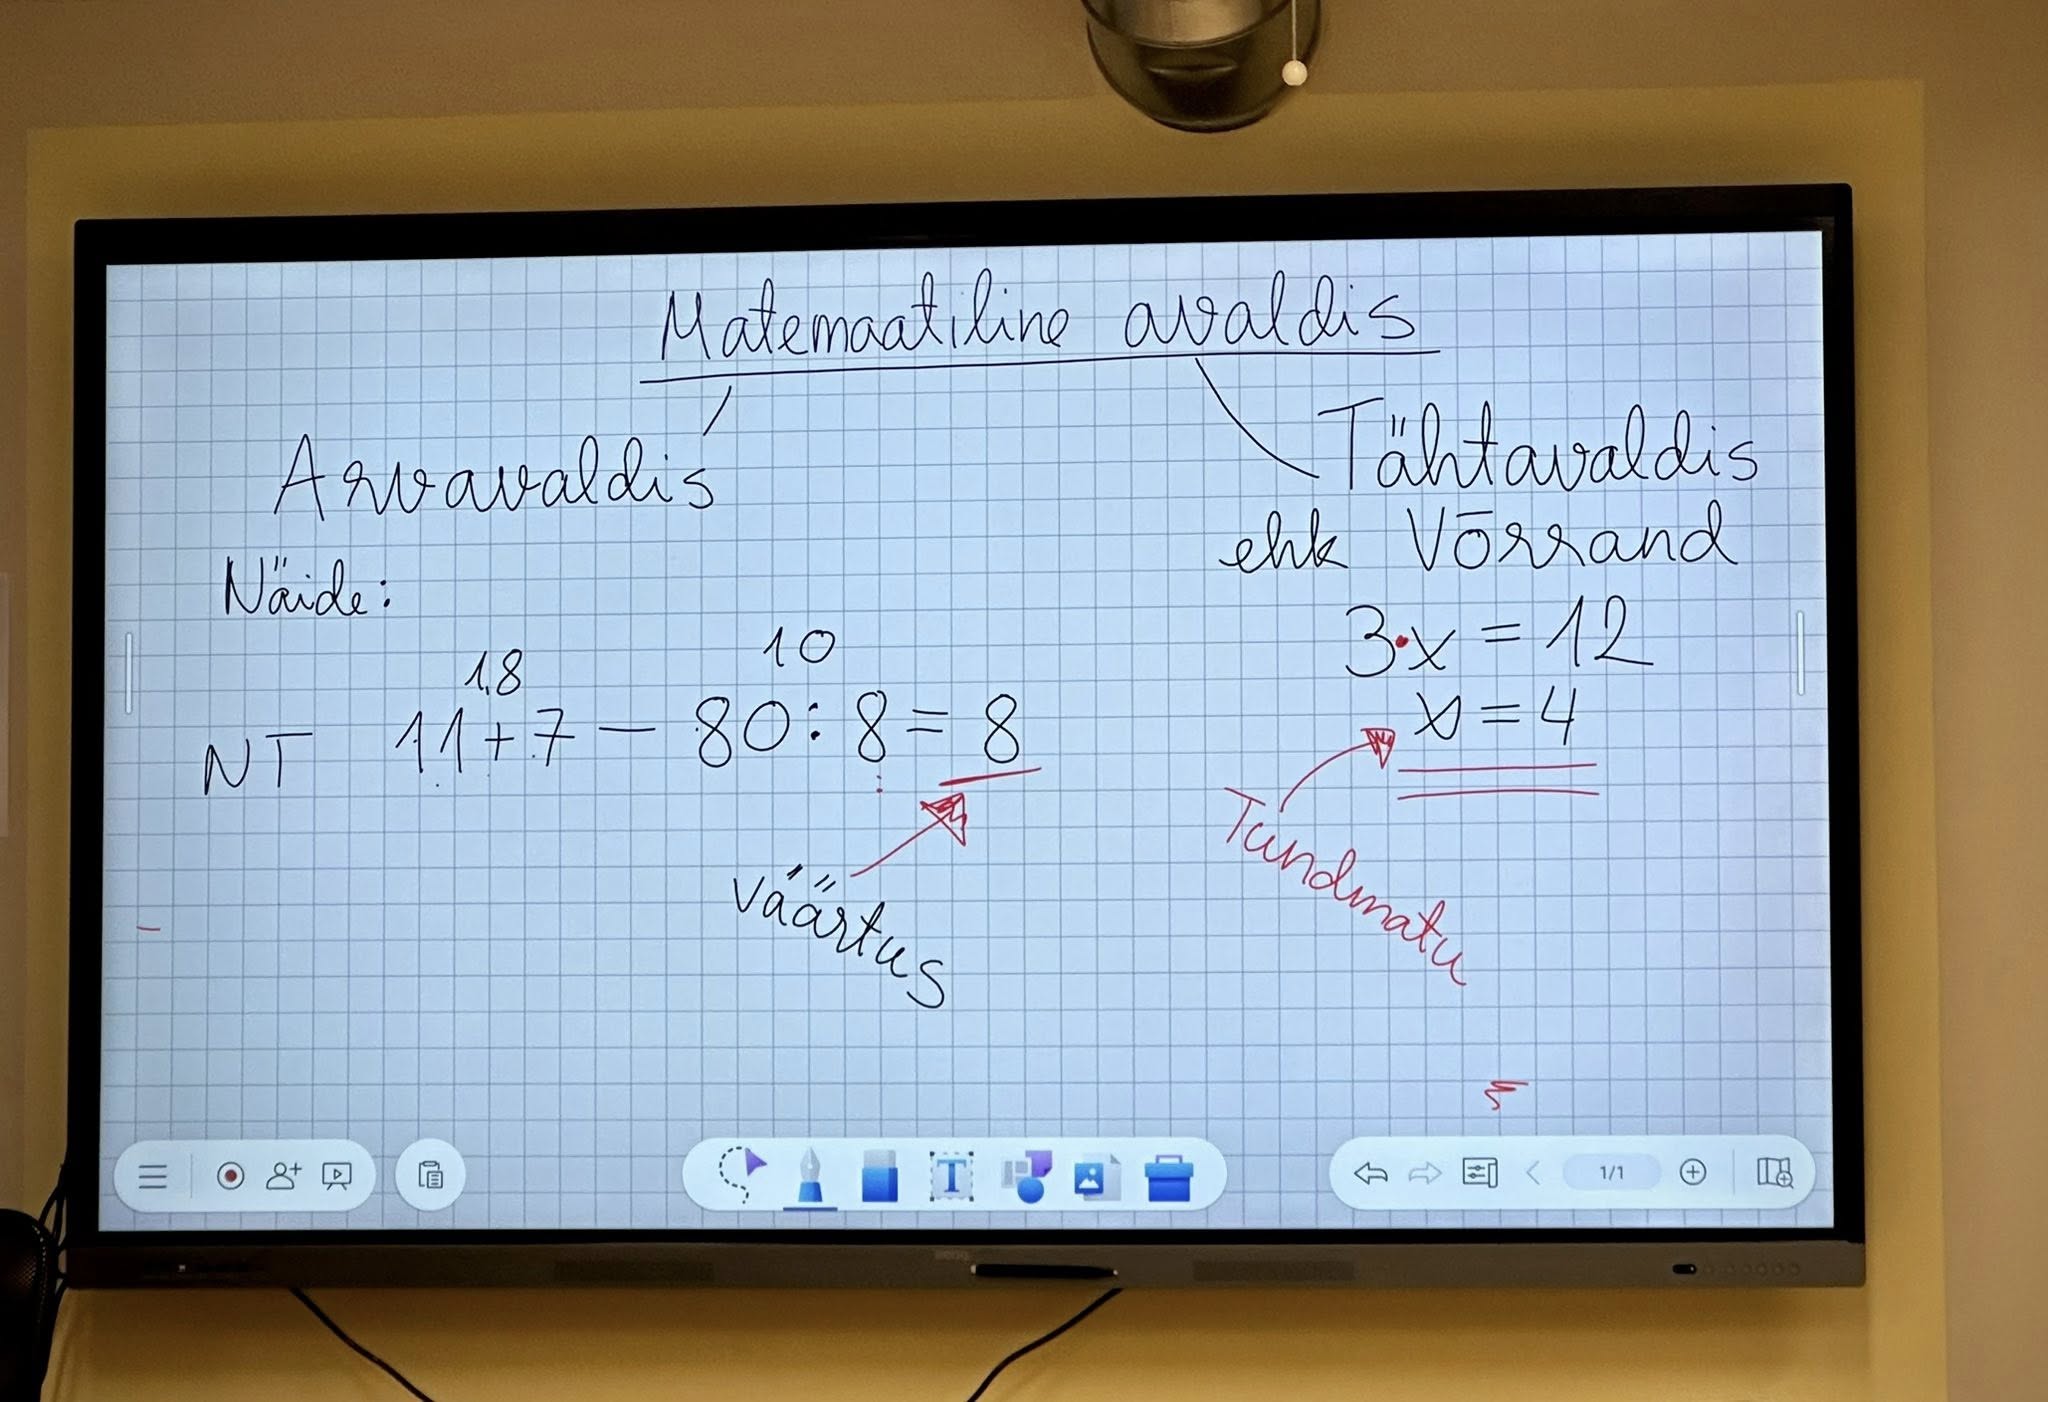 Matemaatiline avaldis
Arvavaldis
Tähtavaldis
ehk Võrrand
Näide:
18
10
NT 11+7 - 80:8=8
väärtus
3·x=12
x=4
Tundmatu
T
1/1